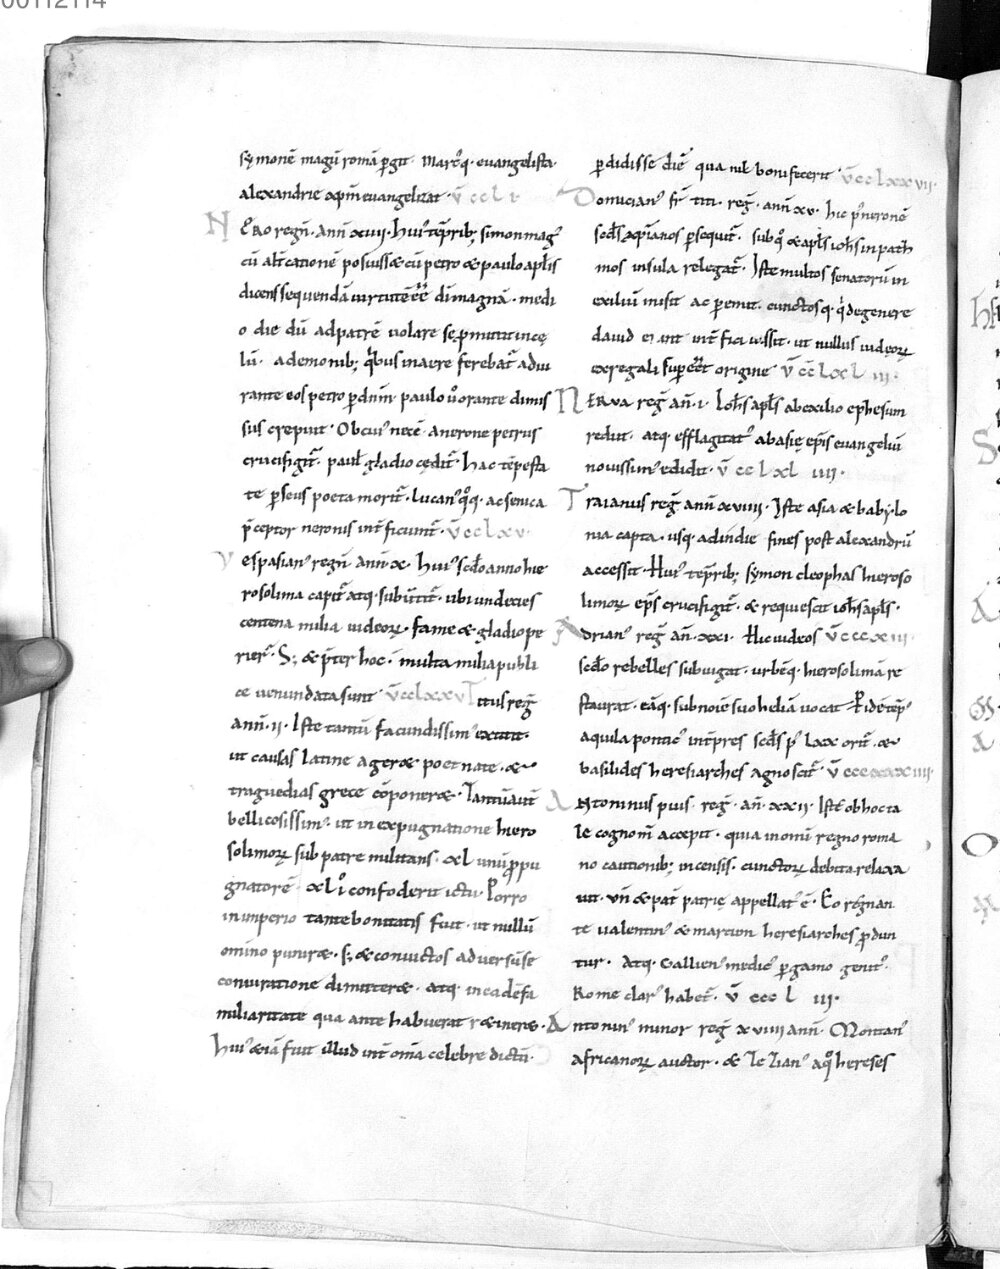 00112114
symonē magū romā ꝑgit · marcꝰq · euangelista ·
alexandrie xp̄m euangelizat · v̄ ccl v
NERO regn̄ · ann̄ xiiii · huiꝰ tēp̄rib; simon magꝰ
cū alt̄catione posuiss& cū petro & paulo apl̄is
dicens se quendā uirtutē eē dī magnā · medi
o die dū ad patrē uolare se ꝓmittit in cę
lū · a demonib; quibus in aere ferebat̄ adiu
rante eos petro ꝑ dn̄m · paulo uo orante dimis
sus crepuit · Ob cuiꝰ necē · a nerone petrus
crucifigit̄ · paul̄ gladio cędit̄ · hac tēpesta
te ꝑseus poeta morit̄ · lucanꝰ qoq · ac senica
p̄ceptor neronis int̄ficiunt̄ · v̄ cclxv ·
Vespasianꝰ regn̄ · ann̄ · x · huiꝰ scd̄o anno hie
rosolima capit̄ atq · subūtit̄ · ubi undecies
centena milia iudeoꝝ · fame & gladio pe
rierꝰ · S; & p̄ter hoc · multa milia publi
ce uenundata sunt · v̄cclxxv Titus reḡ
ann̄ · ii · Iste tantū facundissimꝰ extitit ·
ut causas latine ager& poemate · &
traguedias grece cōponer& · Tantū aut̄
bellicosissimꝰ · ut in expugnatione hiero
solimoꝝ sub patre militans · xl unū ꝓpu
gnatorē · xl i confoderit ictu · Porro
in imperio tante bonitatis fuit · ut nullū
omino punir& · s; & conuictos aduersū se
coniuratione dimitter& · atq · in eadē fa
miliaritate qua ante habuerat r&iner& ·
huiꝰ &iā fuit illud int̄ om̄a celebre dictū ·
ꝑdidisse diē qua nil boni fecerit v̄cclxxvii ·
Domicianꝰ fr̄ titi · reḡ · ann̄ xv · hic p̄ neronē
scd̄s xp̄ianos ꝑsequit̄ · sub q° & apl̄s ioh̄s in path
mos insula relegat̄ · Iste multos senatorū in
exiliū misit ac ꝑemit · cunctosq · qi de genere
dauid erant int̄fici iussit · ut nullus iudeoꝝ
ex regali supeēt origine v̄ cc lxl iii ·
NERVA reḡ añ · i · Ioh̄s apl̄s ab exilio ephesum
rediit · atq efflagitatꝰ ab asię ep̄is euangeliū
nouissimꝰ edidit · v̄ cc lxl iiii ·
Traianus reḡ ann̄ xviiii · Iste asia & babylo
nia capta · usq · ad indie fines post alexandrū
accessit · Huiꝰ tēp̄rib; symon cleophas hieroso
limoꝝ ep̄s crucifigit̄ · & requiescit ioh̄s apl̄s ·
Adrianꝰ reḡ añ · xxi · Hic iudeos v̄cccxiii
scd̄o rebelles subiugat · urbēq · hierosolimā re
staurat · eāq · sub noīe suo heliā uocat · Ꝑ idē tēpꝰ
aquila ponticꝰ int̄pres scd̄s pꝰ lxx orit̄ · &
basilides heresiarches agnoscit̄ · v̄ cccxxxiiii
Antoninus pius reḡ · añ · xxii · Iste ob hoc ta
le cognom̄ accepit · quia in omi regno roma
no cautionib; incensis · cunctoꝝ debita relaxa
uit · un̄ & pat̄ patrię appellatꝰ ē · Eo regnan
te ualentinꝰ & marcion heresiarches ꝓdun
tur · atq · Gallienꝰ medicꝰ ꝑgamo genitꝰ ·
Rome clarꝰ habet̄ · v̄ ccc l iii ·
Antoninꝰ minor reḡ xviiii ann̄ · Montanꝰ
africanoꝝ auctor · & Tezianꝰ a quo hereses